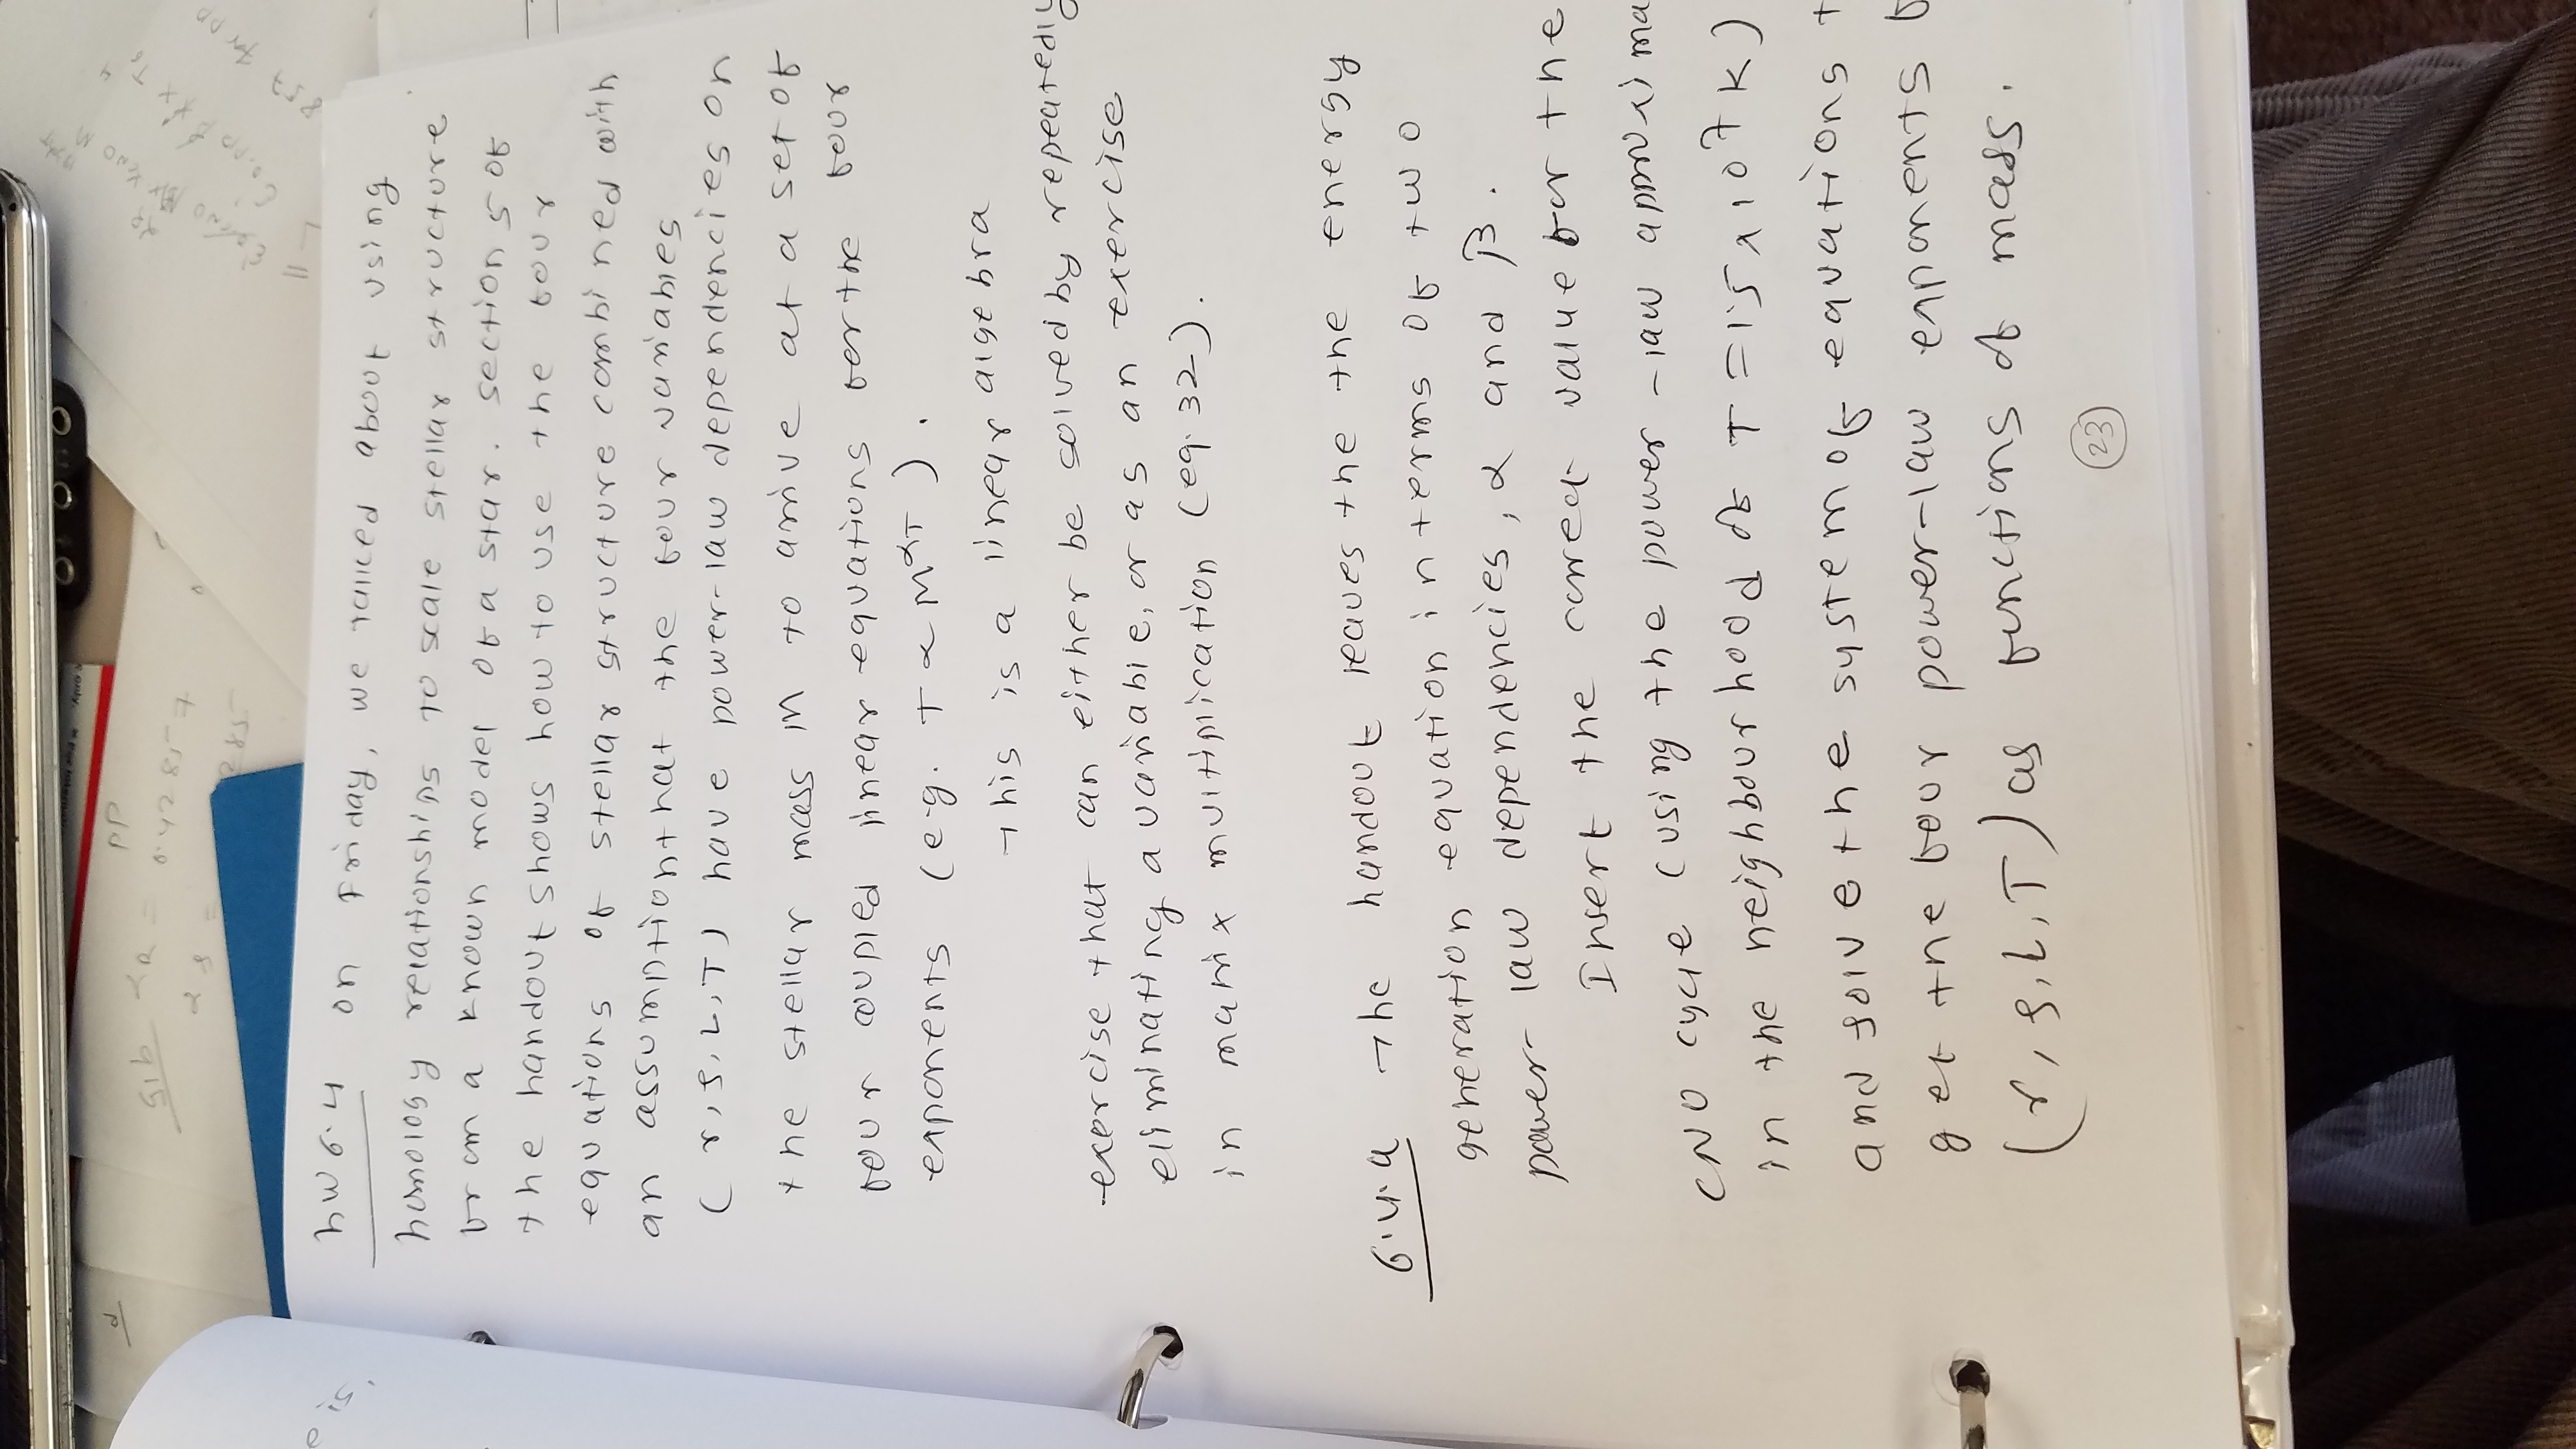 PP
0.42857
hw 6.4 on Friday, we talked about using
homology relationships to scale stellar structure
from a known model of a star. section 5 of
the handout shows how to use the four
equations of stellar structure combined with
an assumption that the four variables
(r, ρ, L, T) have power-law dependencies on
the stellar mass M to arrive at a set of
four coupled linear equations for the four
exponents (e.g. T ∝ M^αT).
This is a linear algebra
exercise that can either be solved by repeatedly
eliminating a variable, or as an exercise
in matrix multiplication (eq. 32).
6.4.a The handout leaves the the energy
generation equation in terms of two
power-law dependencies, α and β.
Insert the correct value for the
CNO cycle (using the power-law approxima
in the neighbourhood of T = 1.5 x 10^7 K)
and solve the system of equations t
get the four power-law exponents f
(r, ρ, L, T) as functions of mass.
23